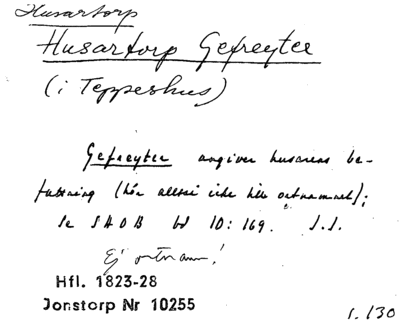 Husartorp
Husartorp Gefreyter
(i Teppeshus)
Gefreyter angiver husarens be-
fattning (hör alltså icke till ortnamnet);
se SAOB bd 10: 169. J.S.
Ej ortnamn!
Hfl. 1823-28
Jonstorp Nr 10255
s. 130